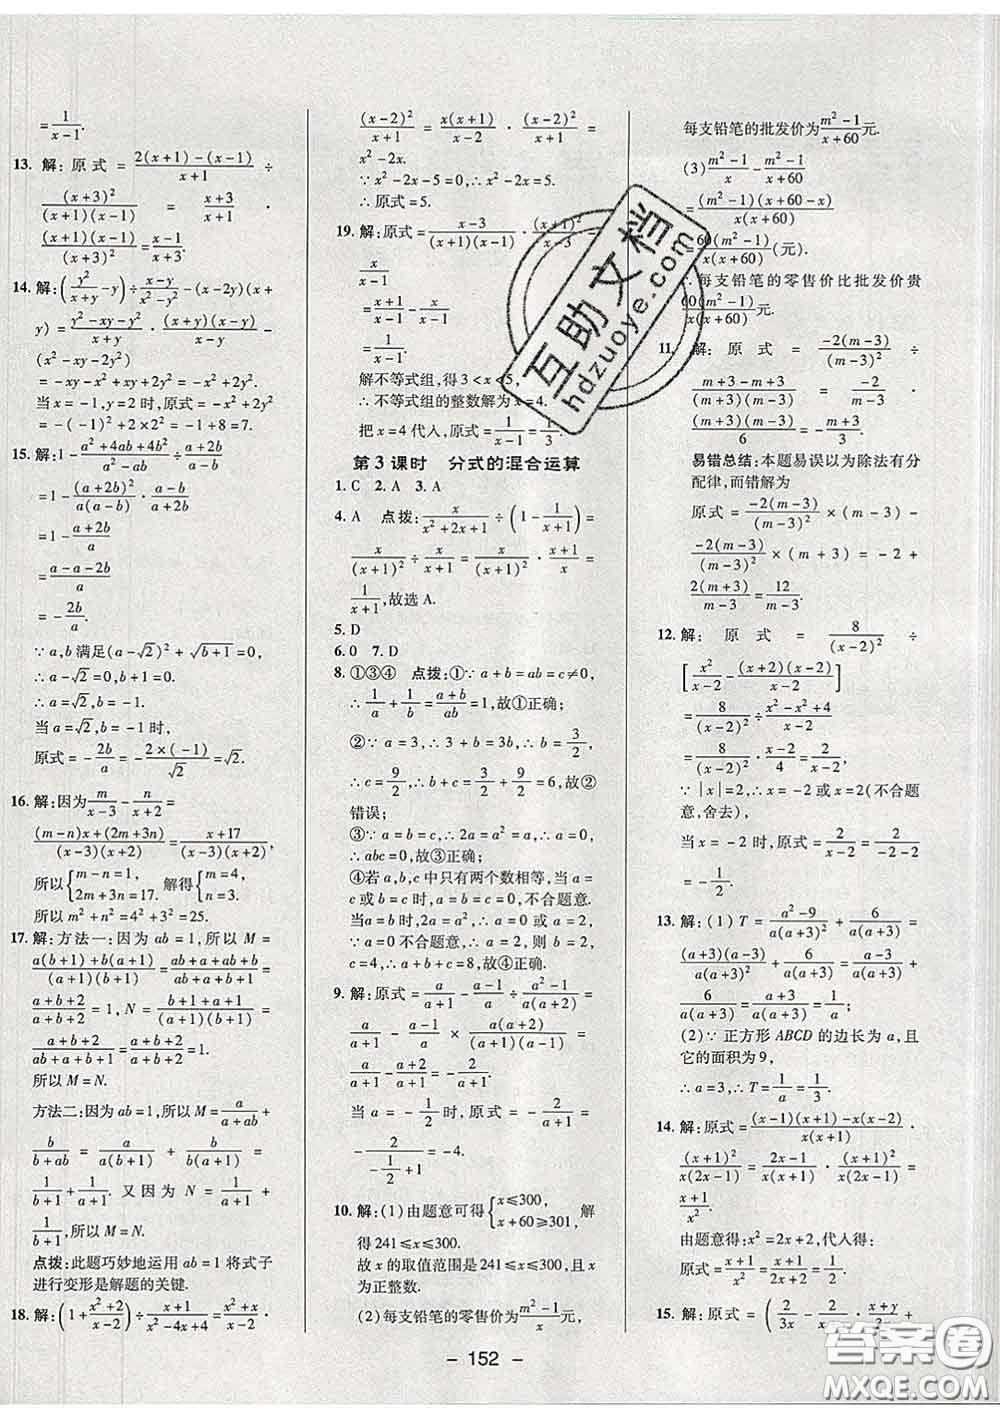 = 1/(x-1).
13. 解:原式 = [2(x+1)-(x-1)]/(x+1) ÷
(x+3)²/[(x+1)(x-1)] = (x+3)/(x+1) ·
(x+1)(x-1)/(x+3)² = (x-1)/(x+3).
14. 解:(y²/(x+y) - y) ÷ (x-y)/(x²-y²) - (x-2y)(x+
y) = (y²-xy-y²)/(x+y) · (x+y)(x-y)/(x-y) -
(x²-xy-2y²)
= -xy-x²+xy+2y² = -x²+2y²
当 x=-1,y=2 时,原式 = -x²+2y²
= -(-1)²+2×2² = -1+8=7.
15. 解:1 - (a²+4ab+4b²)/(a²-ab) ÷ (a+2b)/(a-b)
= 1 - (a+2b)²/[a(a-b)] · (a-b)/(a+2b)
= 1 - (a+2b)/a
= (a-a-2b)/a
= -2b/a.
∵a,b 满足(a-√2)²+√(b+1)=0,
∴a-√2=0,b+1=0,
∴a=√2,b=-1.
当 a=√2,b=-1 时,
原式 = -2b/a = -2×(-1)/√2 = √2.
16. 解:因为 m/(x-3) - n/(x+2) =
[(m-n)x+(2m+3n)]/[(x-3)(x+2)] = (x+17)/[(x-3)(x+2)],
所以{m-n=1, 2m+3n=17. 解得{m=4, n=3.
所以 m²+n²=4²+3²=25.
17. 解:方法一:因为 ab=1,所以 M=
[a(b+1)+b(a+1)]/[(a+1)(b+1)] = (ab+a+ab+b)/(ab+a+b+1) =
(a+b+2)/(a+b+2) = 1, N = (b+1+a+1)/[(a+1)(b+1)] =
(a+b+2)/(ab+a+b+1) = (a+b+2)/(a+b+2) = 1.
所以 M=N.
方法二:因为 ab=1,所以 M = a/(a+ab) +
b/(b+ab) = a/[a(b+1)] + b/[b(a+1)] =
1/(b+1) + 1/(a+1). 又因为 N = 1/(a+1) +
1/(b+1),所以 M=N.
点拨:此题巧妙地运用 ab=1 将式子
进行变形是解题的关键.
18. 解:(1+(x²+2)/(x-2)) ÷ (x+1)/(x²-4x+4) = (x²+x)/(x-2) ·
(x-2)²/(x+1) = x(x+1)/(x-2) · (x-2)²/(x+1) =
x²-2x.
∵x²-2x-5=0,∴x²-2x=5.
∴原式=5.
19. 解:原式 = (x-3)/[(x+1)(x-1)] · (x+1)²/(x-3) -
x/(x-1)
= (x+1)/(x-1) - x/(x-1)
= 1/(x-1).
解不等式组,得 3<x<5,
∴不等式组的整数解为 x=4.
把 x=4 代入,原式 = 1/(x-1) = 1/3.
第3课时 分式的混合运算
1. C 2. A 3. A
4. A 点拨:x/(x²+2x+1) ÷ (1-1/(x+1)) =
x/(x+1)² ÷ x/(x+1) = x/(x+1)² · (x+1)/x =
1/(x+1),故选 A.
5. D
6. 0 7. D
8. ①③④ 点拨:①∵a+b=ab=c≠0,
∴1/a+1/b=(a+b)/ab=1,故①正确;
②∵a=3,∴3+b=3b,∴b=3/2,
∴c=9/2,∴b+c=3/2+9/2=6,故②
错误;
③∵a=b=c,∴2a=a²=a,∴a=0,
∴abc=0,故③正确;
④若 a,b,c 中只有两个数相等,当 a=
b 或 a=c 或 b=c 时,不合题意.
当 a=b 时,2a=a²,∴a=0 或 a=2,
∵a=0 不合题意,∴a=2,则 b=2,
c=4,∴a+b+c=8,故④正确.
9. 解:原式 = a/(a+1) - (a-1)/a ÷ (a²-1)/(a²+2a) =
a/(a+1) - (a-1)/a × a(a+2)/[(a+1)(a-1)] =
a/(a+1) - (a+2)/(a+1) = -2/(a+1).
当 a=-1/2 时,原式 = -2/(a+1) =
-2/(-1/2+1) = -4.
10. 解:(1)由题意可得{x≤300, x+60≥301, 解
得 241≤x≤300.
故 x 的取值范围是 241≤x≤300,且 x
为正整数.
(2)每支铅笔的零售价为(m²-1)/x 元,
每支铅笔的批发价为(m²-1)/(x+60)元.
(3)(m²-1)/x - (m²-1)/(x+60)
= (m²-1)(x+60-x)/[x(x+60)]
= 60(m²-1)/[x(x+60)](元).
∴每支铅笔的零售价比批发价贵
60(m²-1)/[x(x+60)]元.
11. 解:原式 = -2(m-3)/(m-3)² ÷
(m+3-m+3)/[(m-3)(m+3)] = -2/(m-3) ·
(m-3)(m+3)/6 = -(m+3)/3.
易错总结:本题易误以为除法有分
配律,而错解为
原式 = -2(m-3)/(m-3)² × (m-3) -
-2(m-3)/(m-3)² × (m+3) = -2+
2(m+3)/(m-3) = 12/(m-3).
12. 解:原式 = 8/(x-2)² ÷
[x²/(x-2) - (x+2)(x-2)/(x-2)]
= 8/(x-2)² ÷ (x²-x²+4)/(x-2)
= 8/(x-2)² · (x-2)/4 = 2/(x-2).
∵|x|=2,∴x=-2 或 x=2(不合题
意,舍去).
当 x=-2 时,原式 = 2/(x-2) = 2/(-2-2) =
-1/2.
13. 解:(1)T = (a²-9)/[a(a+3)²] + 6/[a(a+3)] =
(a+3)(a-3)/[a(a+3)²] + 6/[a(a+3)] = (a-3)/[a(a+3)] +
6/[a(a+3)] = (a+3)/[a(a+3)] = 1/a;
(2)∵正方形 ABCD 的边长为 a,且
它的面积为 9,
∴a=3,∴T=1/a=1/3.
14. 解:原式 = [(x-1)(x+1)-x(x-2)]/[x(x+1)] ·
(x+1)²/[x(2x-1)] = (2x-1)/[x(x+1)] · (x+1)²/[x(2x-1)] =
(x+1)/x².
由题意得:x²=2x+2,代人得:
原式 = (x+1)/x² = (x+1)/(2x+2) = 1/2.
15. 解:原式 = (2/3x - 2/(x+y) · (x+y)/3x +
- 152 -
互助文档
hdzuoye.com
答案圈
MXQE.COM